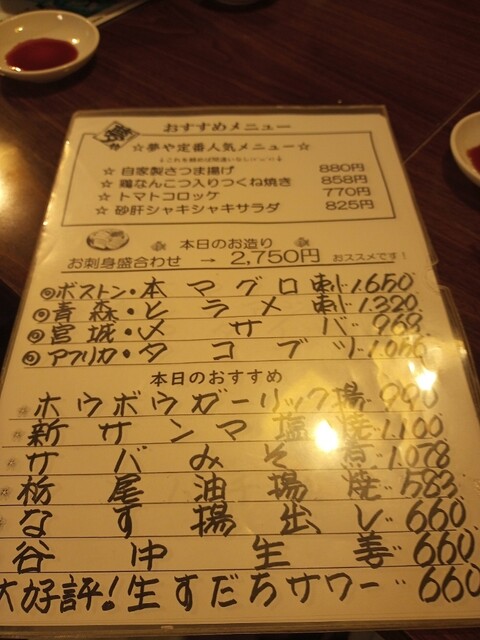 夢や
おすすめメニュー
☆夢や定番人気メニュー☆
☆ 自家製さつま揚げ 880円
☆ 鶏なんこつ入りつくね焼き 858円
☆ トマトコロッケ 770円
☆ 砂肝シャキシャキサラダ 825円
本日のお造り
お刺身盛合わせ → 2,750円 おススメです!
◎ボストン・本マグロ刺 1.650
◎青森・ヒラメ刺 1.320
◎宮城・〆サバ 968
◎アフリカ・タコブツ 1.056
本日のおすすめ
ホウボウガーリック揚 990
新サンマ塩焼 1.100
サバみそ煮 1.078
栃尾油揚焼 583
なす揚出し 660
谷中生姜 660
大好評!生すだちサワー 660